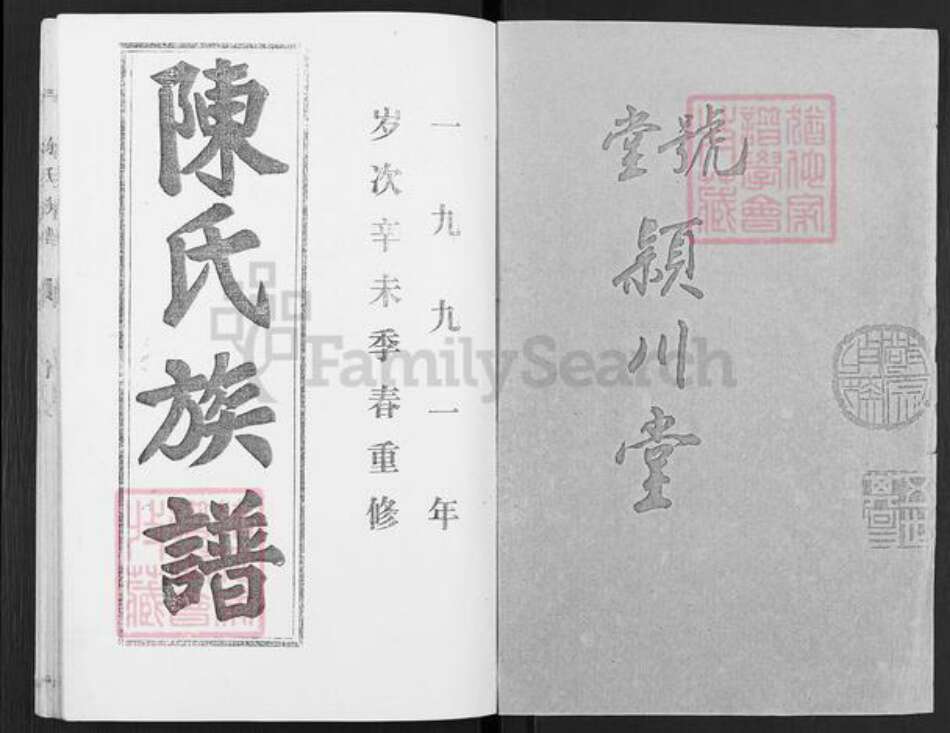 堂號
穎川堂
一九九一年
岁次辛未季春重修
陳氏族譜
FamilySearch